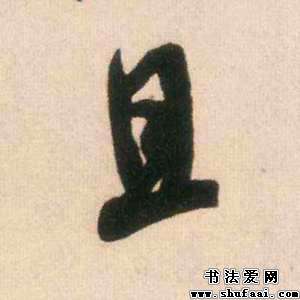 且
书法爱网
www.shufaai.com